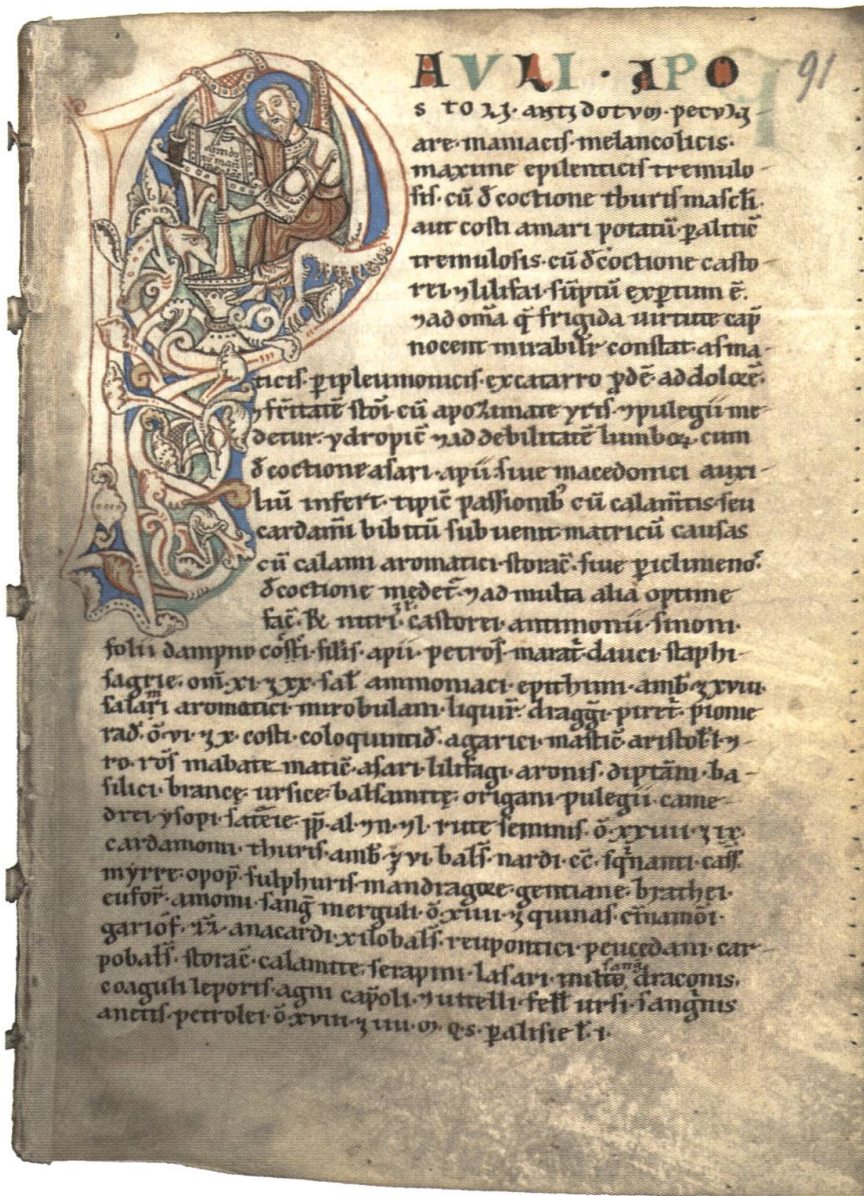 AVLI · APO 91
STOLI · antidotum · peculi
are · maniacis · melancolicis ·
maxime epilenticis tremulo-
sis · cū d̄coctione thuris masc̄li
aut costi amari potatū · ꝑalitic̄
tremulosis · cū d̄coctione casto-
rei ⁊ lilifai · sūptū exꝑtum ē.
⁊ ad om̄a q̄ frigida uirtute cap̄
nocent mirabilr̄ constat · asma-
ticis · ꝑipleumonicis · excatarro ꝓdē · ad dolorē ·
⁊ fr̄itatē stōi · cū apozimate yris · ⁊ pulegii me-
detur · ydropic̄ ⁊ ad debilitatē lumboꝝ · cum
d̄coctione asari · apii · siue macedonici auxi-
liū infert · tipic̄ passionib' cū calam̄tis · seu
cardam̄i bibitū subuenit · matricū causas
cū calami aromatici · storac̄ · siue ꝑiclimeno᷒
d̄coctione medet᷒ · ⁊ ad multa alia optime
fac̄ · castorei · antimonii · sinoni ·
folii dampnu costi · silis · apii · petros̄ · marat̄ · dauci · staphi-
sagrie · om̄ · xi · ʒ xx · sal̄ ammoniaci · epithimi · amb̄ · ʒ xviii ·
aromatici · mirobulani · liquir̄ · dragḡi · piret̄ · pionie
rad̄ · ō · vi · ʒ x · costi · coloquintid̄ · agarici · mastic̄ · aristol̄ · l ⁊
ro · ros̄ mabate matic̄ · asari · lilifagi · aronis · diptāni · ba-
silici · brancę · ursice · balsamitę · origani · pulegii · came-
drei · ysopi · al · ⁊ n · ⁊ l · rute seminis · ō · xxiiii · ʒ ix ·
cardamomi · thuris · amb̄ · ʒ vi · bals̄ · nardi · cc̄ · sq̄nanti · cass̄
myrre · opop̄ · sulphuris · mandragore · gentiane · brathei ·
eufor̄ · amomi · sang̅ merguli · ō · xiiii · ʒ quinas · cīnamōi ·
gariof̄ · anacardi · xilobals̄ · reupontici · peucedani · car-
pobals̄ · storac̄ · calamite · serapini · lasari · sang̅ draconis,
coaguli leporis · agni cap̄oli · ⁊ uitelli · fell̄ ursi · sanḡnis
anetis · petrolei · ō xviii · ʒ iiii · m̄ · qs · ꝑalisie ł · i ·